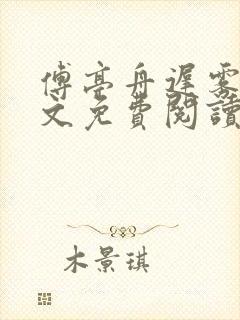 傅亭舟遲霧
文免費閱讀
木景琪